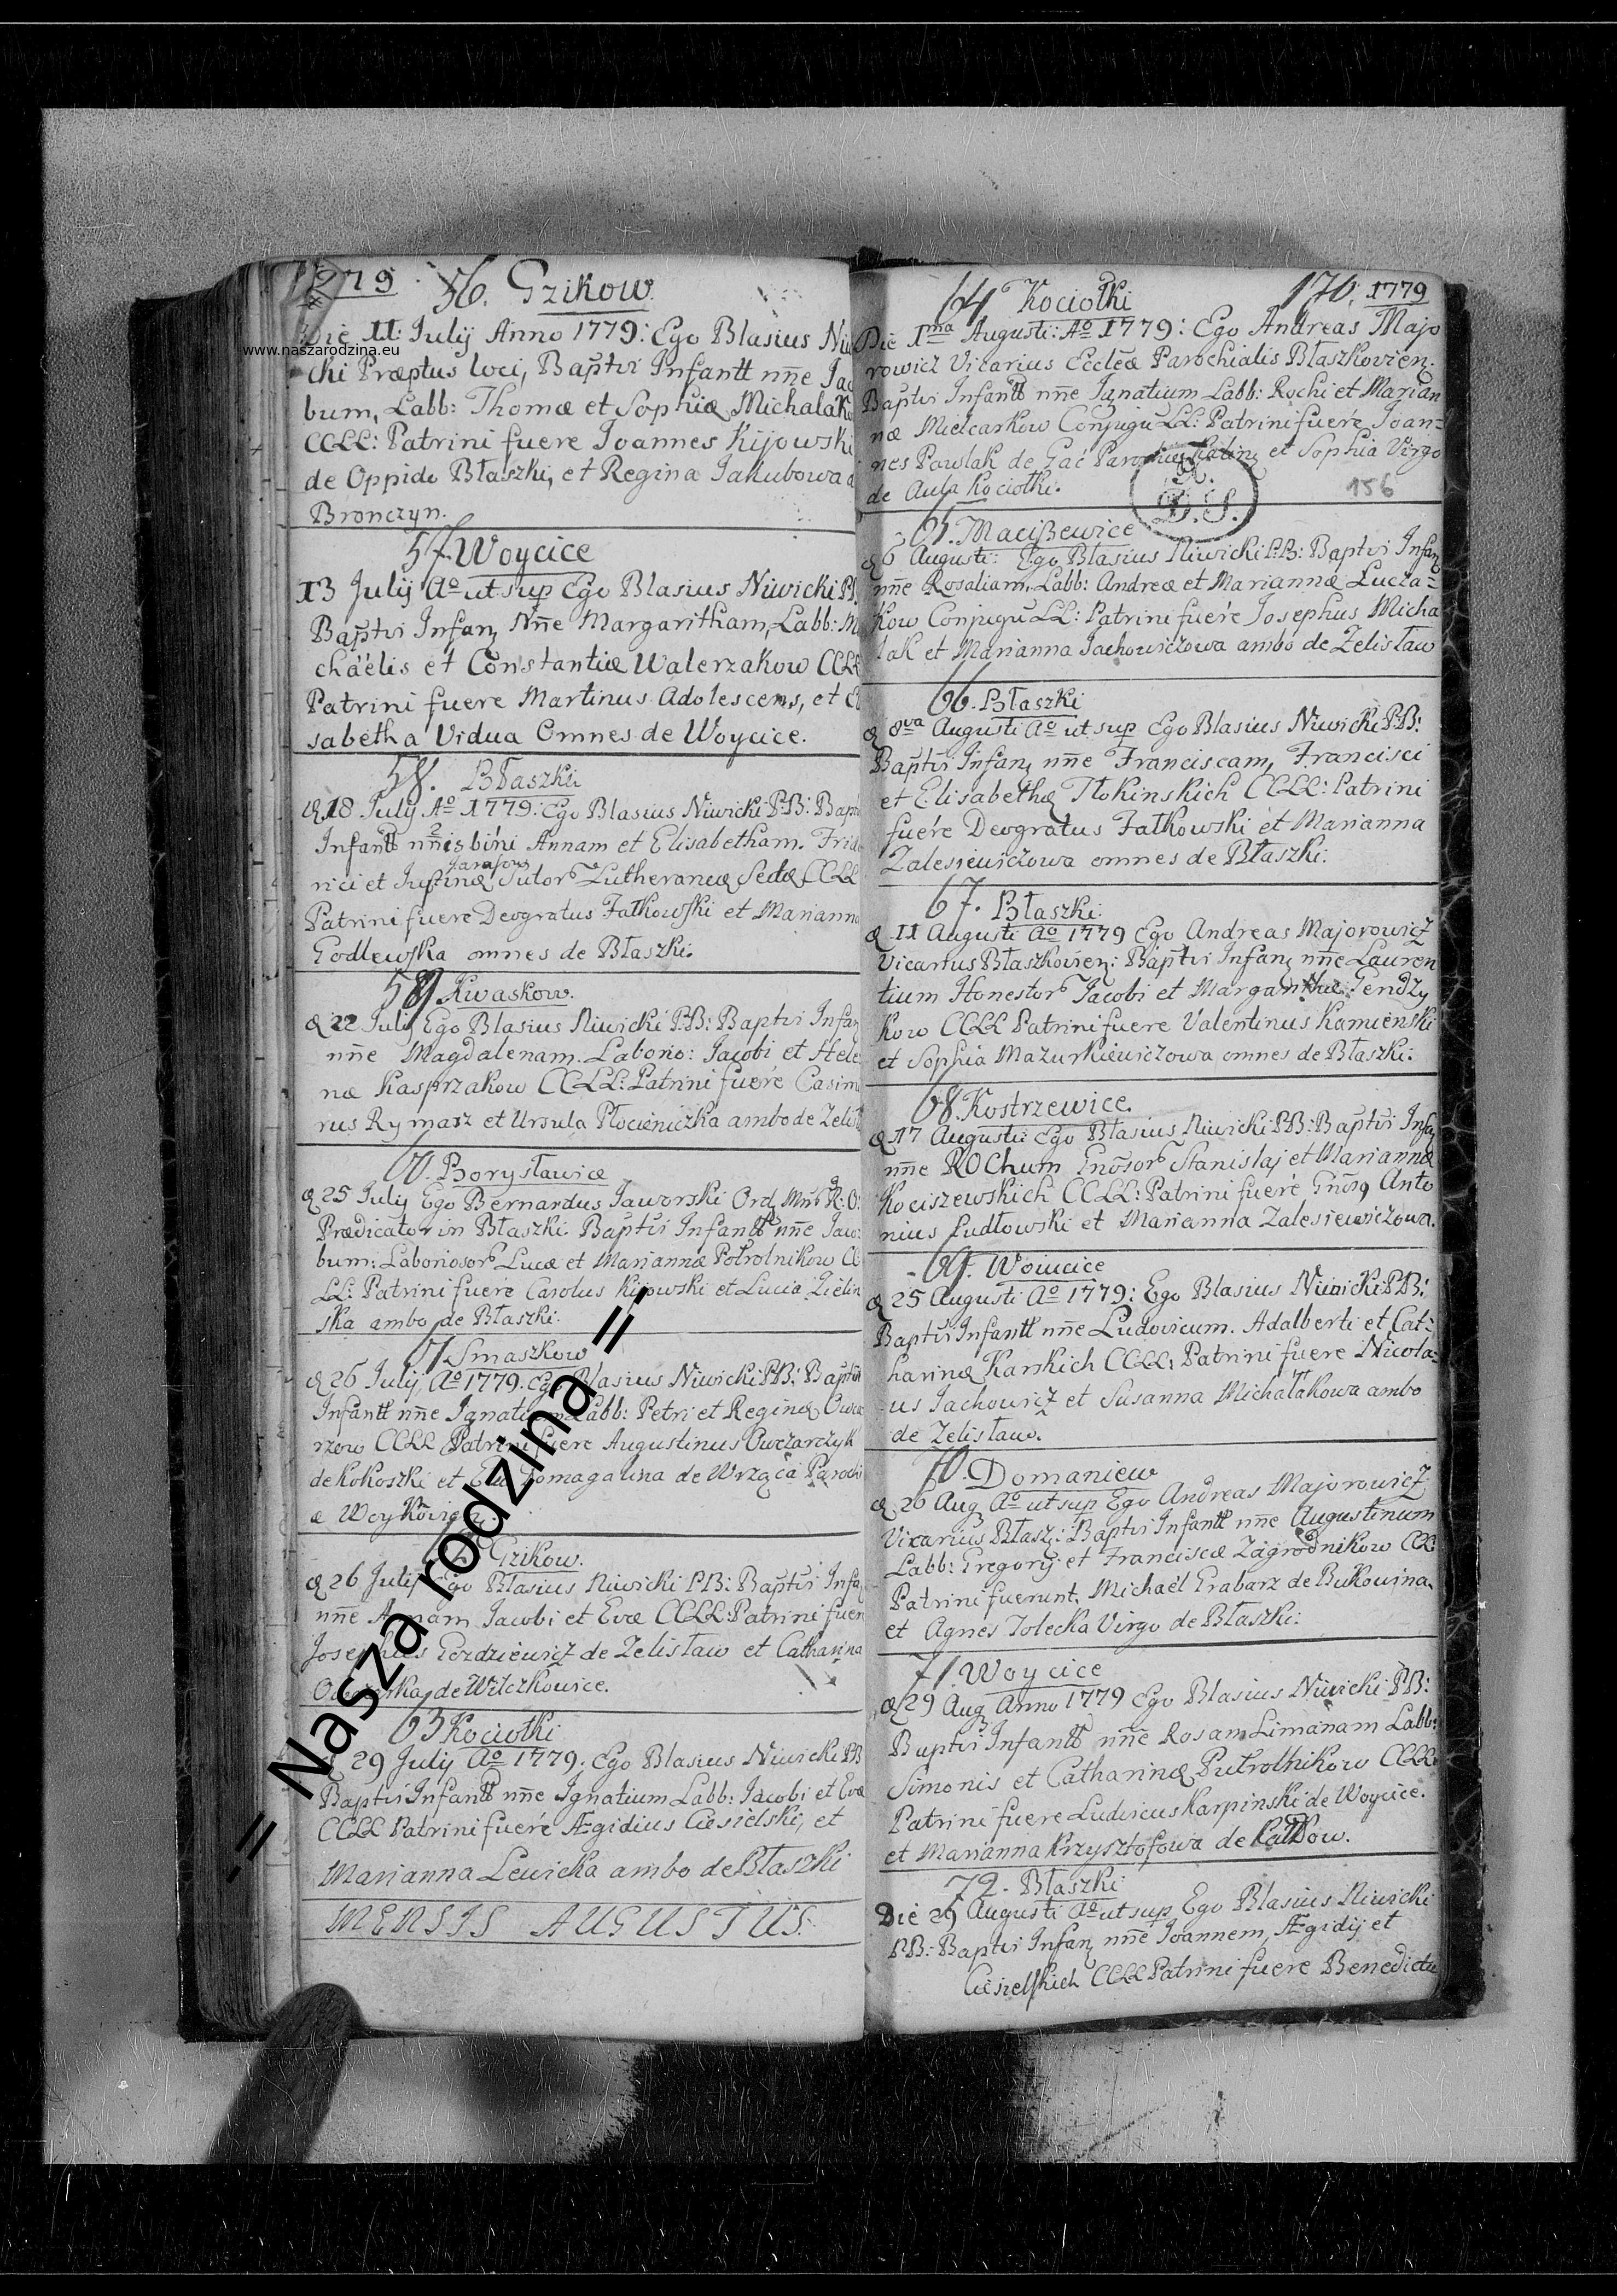 1779
56. Gzikow
Die 11 July Anno 1779: Ego Blasius Niw
www.naszarodzina.eu
cki Præptus loci, Baptvi Infantt nne Jac
bum, Labb: Thomæ et Sophiæ Michalak
CCLL: Patrini fuere Joannes Kijowski
de Oppido Błaszki, et Regina Jakubowa d
Bronczyn.
57. Woycice
13 July Ao ut sup Ego Blasius Niwicki P
Baptvi Infan, Nne Margaritham, Labb: M
chäelis et Constantiæ Walerzakow CCLL
Patrini fuere Martinus Adolescens, et El
sabetha Vidua Omnes de Woycice.
58. Błaszki
18 July Ao 1779: Ego Blasius Niwicki PB: Bapt
Infantt nnis bini Annam et Elisabetham. Frid
rici et Justinæ Sutor Lutheranæ Sectæ CCLL
Patrini fuere Deogratus Fałkowski et Marianna
Godlewska omnes de Błaszki.
59. Kwaskow.
22 July Ego Blasius Niwicki PB: Baptvi Infan
nne Magdalenam. Laborio: Jacobi et Hele
næ Kasprzakow CCLL: Patrini fuere Casimi
rus Rymasz et Ursula Płocieniczka ambo de Zelist
60. Borysławice
25 July Ego Bernardus Jaworski Ord
Prædicator in Błaszki Baptvi Infantt nne Jaco:
bum: Laboriosor Lucæ et Mariannæ Połrolnikow C
LL: Patrini fuere Carolus Kijowski et Lucia Zielin
ska ambo de Błaszki.
61 Smaszkow
26 July Ao 1779. Ego Blasius Niwicki PB: Baptvi
Infantt nne Ignatium Labb: Petri et Reginæ Owcza
rzow CCLL Patrini fuere Augustinus Owczarczyk
de Kokoszki et Domagalina de Wrząca Parochi
æ
62 Gzikow.
26 July Ego Blasius Niwicki PB: Baptvi Infan
nne Annam Jacobi et Evæ CCLL: Patrini fuer
Josephus de Zelisław et Catharina
de Wilczkowice.
63 Kociołki
29 July Ao 1779. Ego Blasius Niwicki PB
Baptvi Infantt nne Ignatium Labb: Jacobi et Evæ
CCLL Patrini fuere Ægidius Ciesielski, et
Marianna Lewicka ambo de Błaszki
MENSIS AUGUSTUS.
-= Nasza rodzina =-
64 Kociołki 170. 1779
Die 1ma Augusti: Ao 1779: Ego Andreas Majo
rowicz Vicarius Eccleæ Parochialis Błaszkovien:
Baptvi Infantt nne Ignatium Labb: Rochi et Marian
næ Mielcarkow Conjugu LL: Patrini fuere Joan=
nes Pawlak de Gać et Sophia Virgo
de Aula Kociołki.
156
65. Macißewice
6 Augusti: Ego Blasius Niwicki PB: Baptvi Infan
nne Rosaliam, Labb: Andreæ et Mariannæ Lucza=
kow Conjugu LL: Patrini fuere Josephus Micha
lak et Marianna Jachowiczowa ambo de Zelisław
66. Błaszki
8va Augusti Ao ut sup Ego Blasius Niwicki PB:
Baptvi Infan, nne Franciscam, Francisci
et Elisabethæ Tłokinskich CCLL: Patrini
fuere Deogratus Fałkowski et Marianna
Zalesiewiczowa omnes de Błaszki.
67. Błaszki.
11 Augusti Ao 1779 Ego Andreas Majorowicz
Vicarius Błaszkovien: Baptvi Infan, nne Lauren
tium Honestor Jacobi et Margarithæ Gendzy
kow CCLL Patrini fuere Valentinus Kamienski
et Sophia Mazurkiewiczowa omnes de Błaszki:
68. Kostrzewice.
17 Augusti Ego Blasius Niwicki PB: Baptvi Infan
nne ROChum Gnosor Stanislaj et Mariannæ
Kociszewskich CCLL: Patrini fuere Gnosq Anto
nius Ludłowski et Marianna Zalesiewiczowa.
69. Woiucice
25 Augusti Ao 1779: Ego Blasius Niwicki PB:
Baptvi Infantt nne Ludovicum. Adalberti et Cat:
harinæ Karskich CCLL: Patrini fuere Nicola=
us Jachowicz et Susanna Michalakowa ambo
de Zelisław.
70. Domaniew
26 Aug Ao ut sup Ego Andreas Majorowicz
Vicarius Błasz: Baptvi Infantt nne Augustinum
Labb: Gregorij et Franciscæ Zagrodnikow CCLL
Patrini fuerunt, Michaël Grabarz de Bukowina
et Agnes Tolecka Virgo de Błaszki:
71. Woycice
29 Aug Anno 1779 Ego Blasius Niwicki PB:
Baptvi Infantt nne Rosam Limanam Labb:
Simonis et Catharinæ Putrolnikow CCLL
Patrini fuere Ludvicus Karpinski de Woycice.
et Marianna Krzysztofowa de
72. Błaszki
Die 29 Augusti Ao ut sup Ego Blasius Niwicki
PB: Baptvi Infan, nne Joannem, Ægidij et
Ciesielskich CCLL Patrini fuere Benedictu